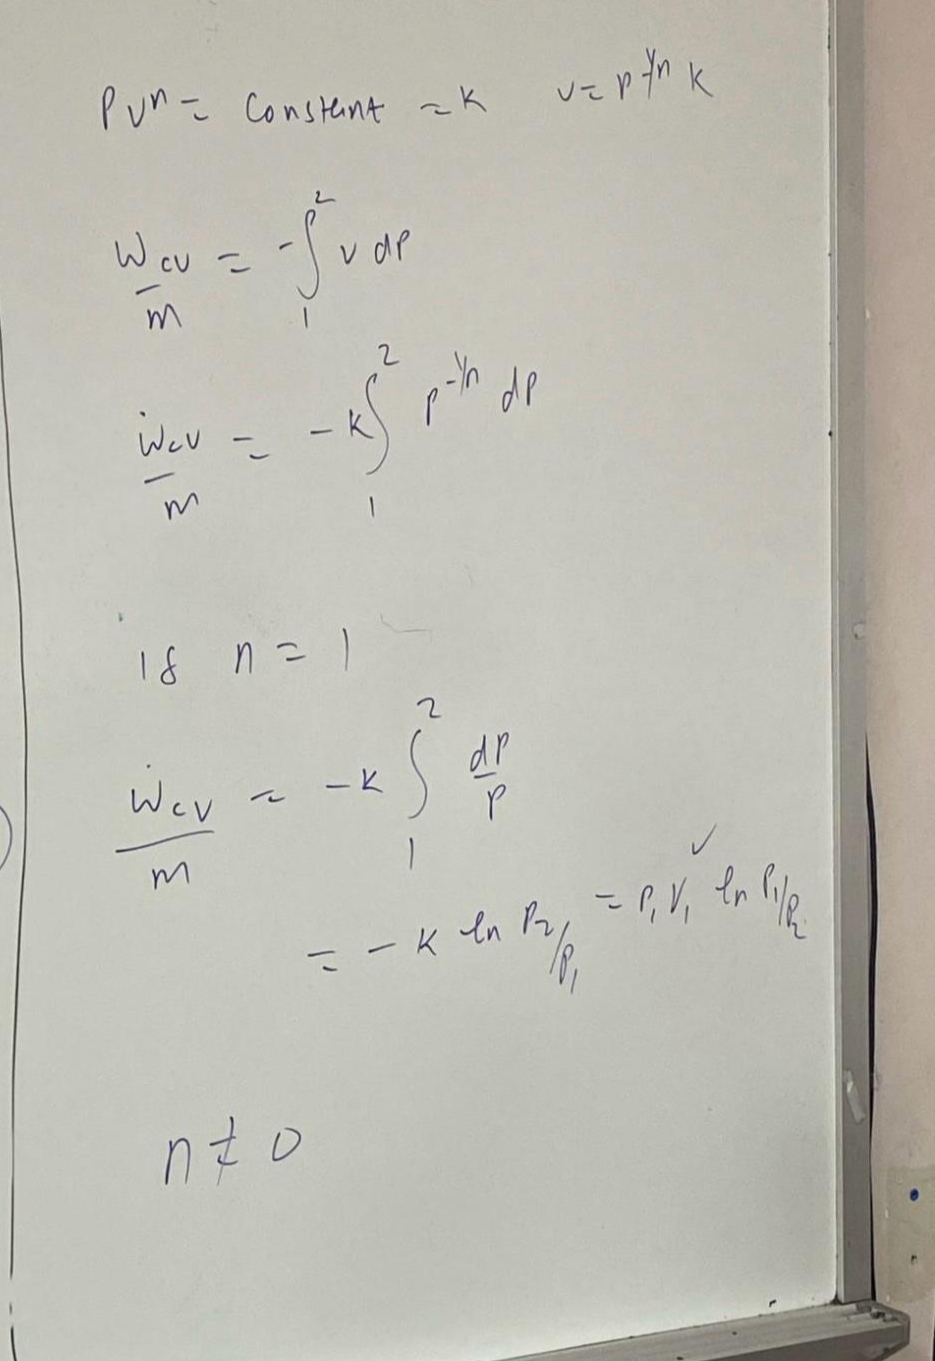 Pvⁿ = Constant = K v = P^-1/n K
Wcv/m = -∫₁² v dP
Ẇcv/m = -K ∫₁² P^-1/n dP
If n = 1
Ẇcv/m = -K ∫₁² dP/P
= -K ln P₂/P₁ = P₁V₁ ln P₁/P₂ ✓
n ≠ 0